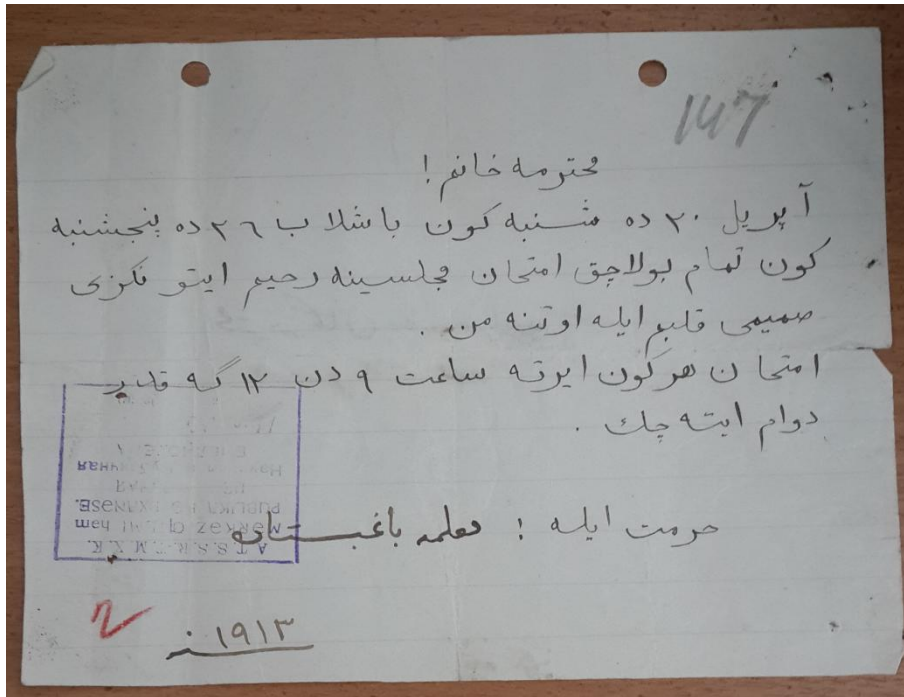 147
محترمه خانم !
آپریل ۲۰ ده شنبه كون باشلاب ۲٦ ده پنجشنبه
كون تمام بولاچق امتحان مجلسینه رحیم ایتو ڭزی
صمیمی قلبم ایله اوتنه من .
امتحان هركون ایرته ساعت ۹ دن ۱۲ گه قدر
دوام ایته چك .
حرمت ایله : معلمه باغبستان
A.T.S.S.R. T.M.X.K.
Mərkəz həm
PUBLIKA
2
۱۹۱۳